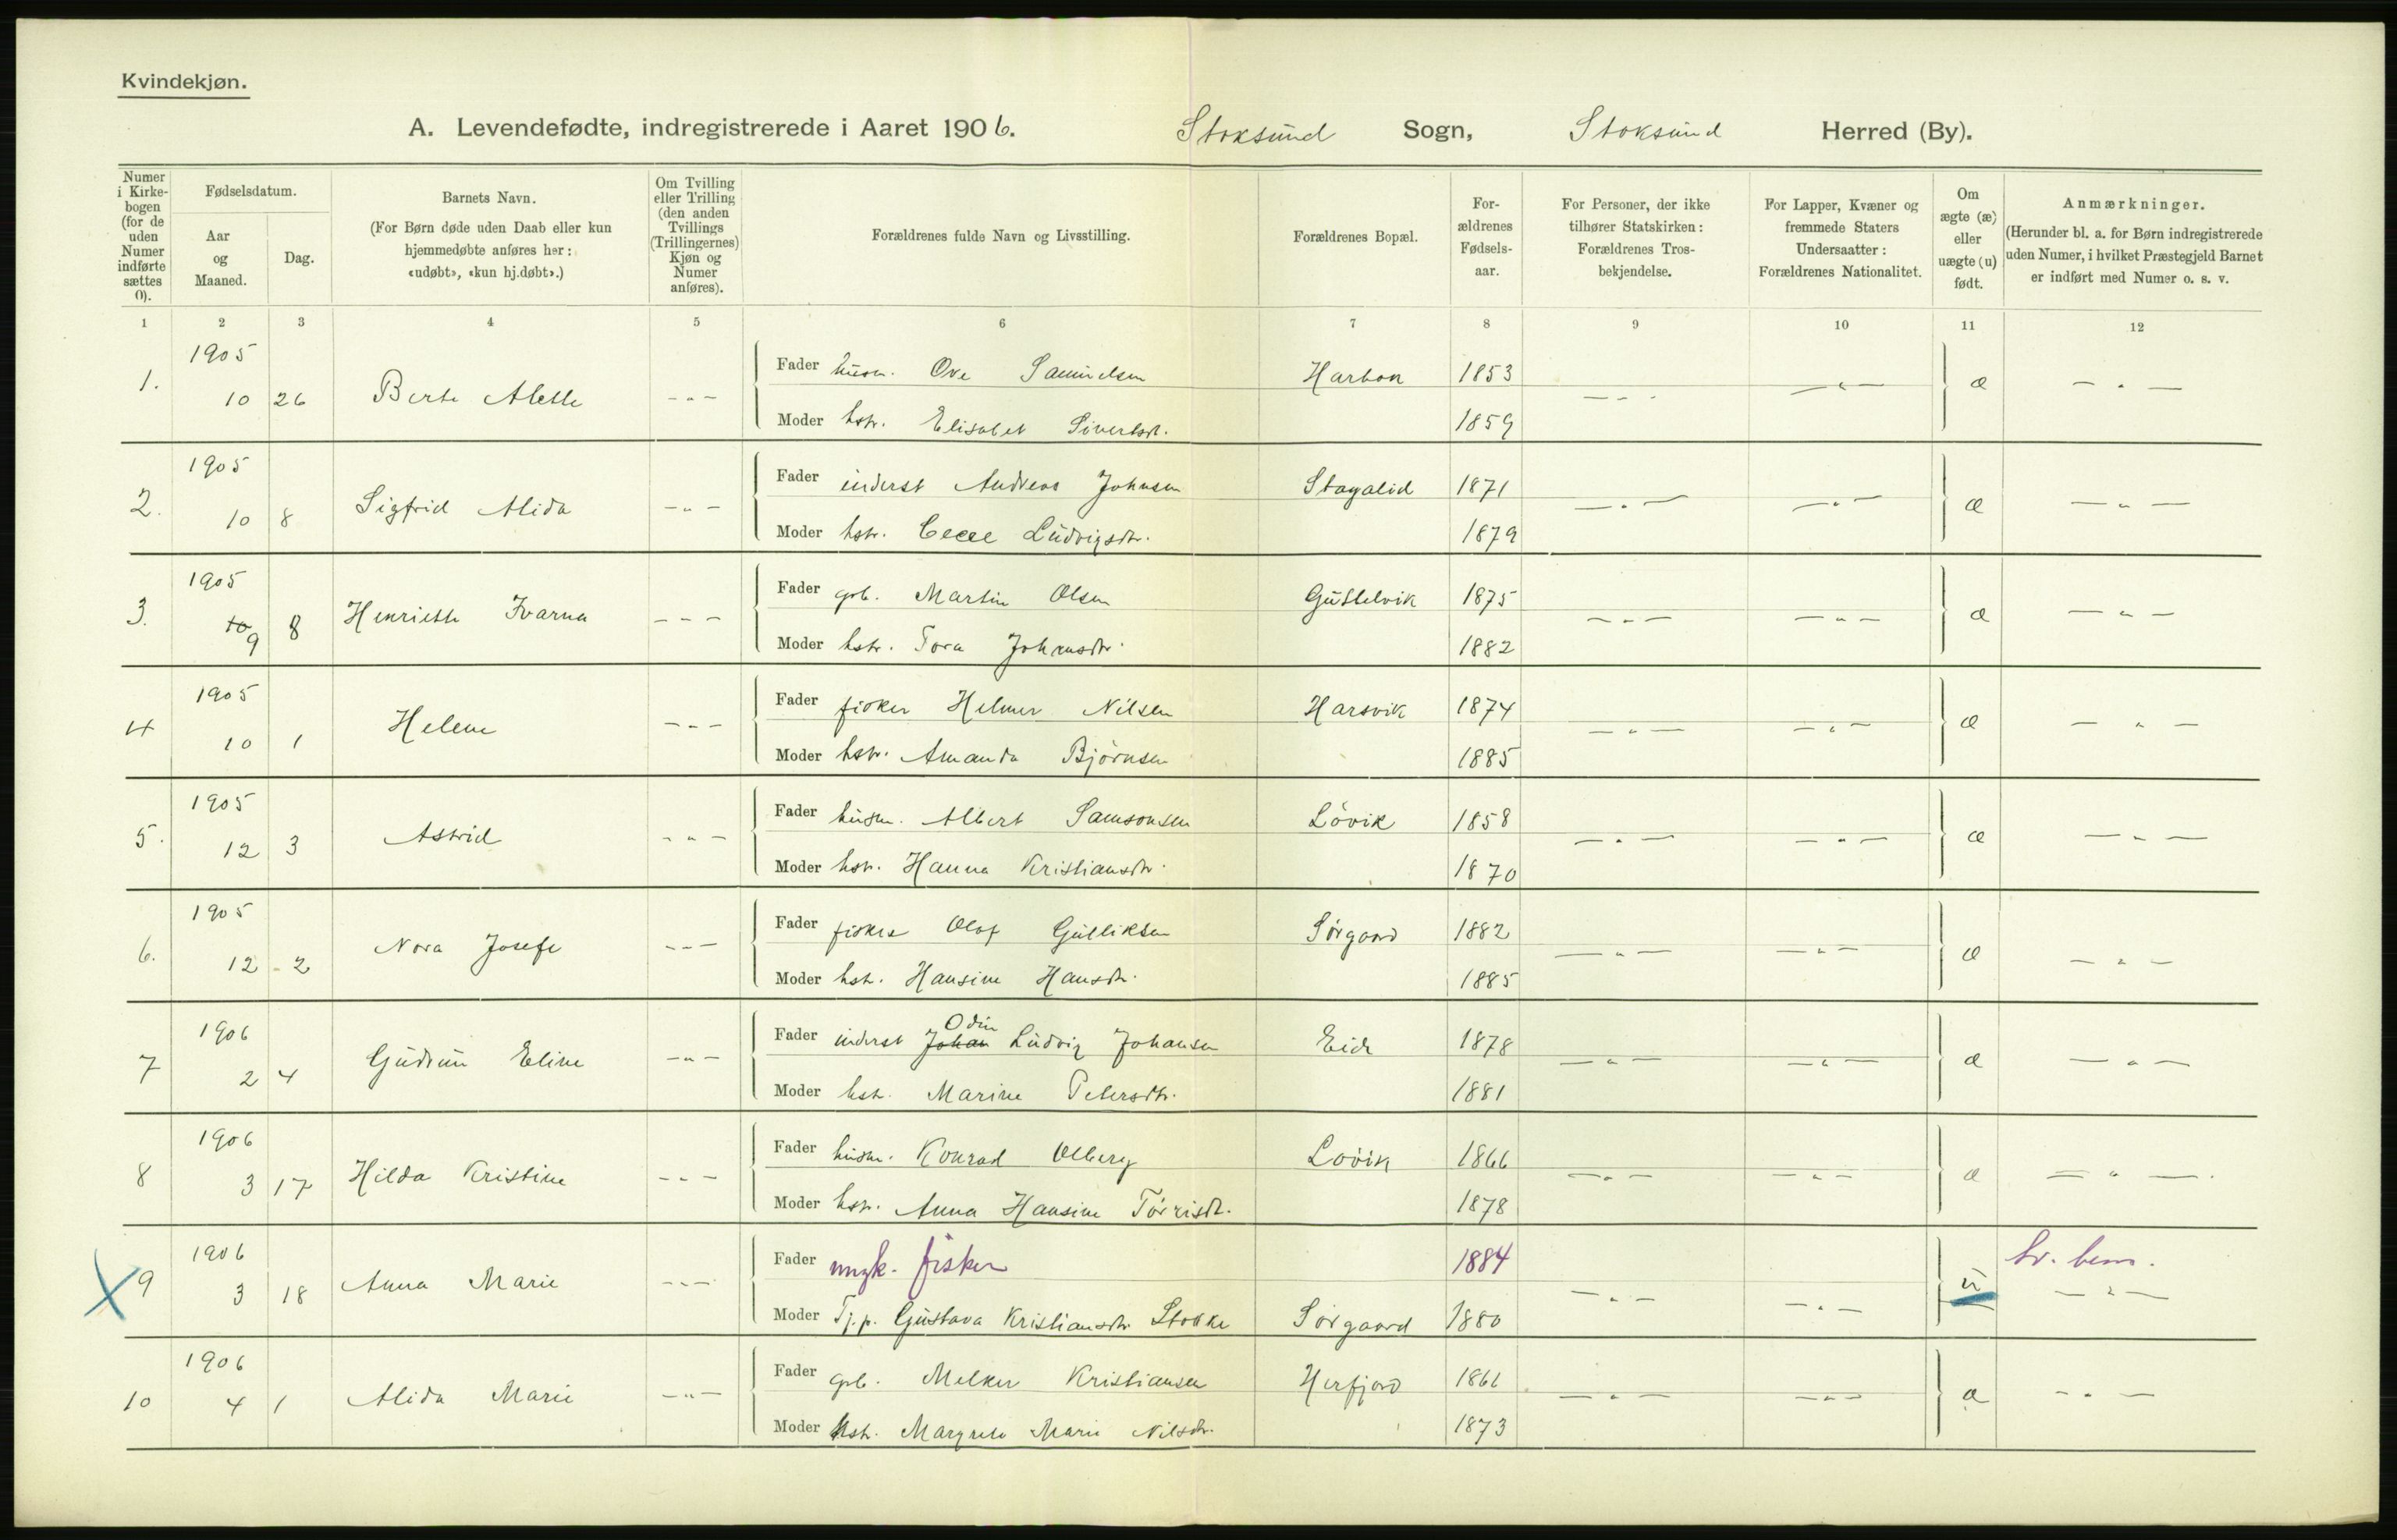 Kvindekjøn.
A. Levendefødte, indregistrerede i Aaret 1906. Stoksund Sogn, Stoksund Herred (By).
Numer i Kirkebogen (for de uden Numer indførte sættes 0).
Fødselsdatum.
Aar og Maaned.
Dag.
Barnets Navn.
(For Børn døde uden Daab eller kun hjemmedøbte anføres her: «udøbt», «kun hj.døbt».)
Om Tvilling eller Trilling (den anden Tvillings (Trillingernes) Kjøn og Numer anføres).
Forældrenes fulde Navn og Livsstilling.
Forældrenes Bopæl.
Forældrenes Fødselsaar.
For Personer, der ikke tilhører Statskirken: Forældrenes Trosbekjendelse.
For Lapper, Kvæner og fremmede Staters Undersaatter: Forældrenes Nationalitet.
Om ægte (æ) eller uægte (u) født.
Anmærkninger.
(Herunder bl. a. for Børn indregistrerede uden Numer, i hvilket Præstegjeld Barnet er indført med Numer o. s. v.
1 2 3 4 5 6 7 8 9 10 11 12
1. 1905 10 26 Berte Alette - " - Fader husm. Ove Samuelsen Harbak 1853 - " - - " - æ - " -
Moder hstr. Elisabet Sivertsdt. 1859
2. 1905 10 8 Sigfrid Alida - " - Fader inderst Andreas Johnsen Stagalid 1871 - " - - " - æ - " -
Moder hstr. Ludvigsdtr. 1879
3. 1905 10 9 8 Henriette Ivarna - " - Fader grb. Martin Olsen Guttelvik 1875 - " - - " - æ - " -
Moder hstr. Tora Johansdtr. 1882
4 1905 10 1 Helene - " - Fader fisker Helmer Nilsen Harsvik 1874 - " - - " - æ - " -
Moder hstr. Amanda Björnsen 1885
5. 1905 12 3 Astrid - " - Fader husm. Albert Samsonsen Lövik 1858 - " - - " - æ - " -
Moder hstr. Hanna Kristiansdtr. 1870
6. 1905 12 2 Nora Josefe - " - Fader fisker Olaf Gulliksen Sörgaard 1882 - " - - " - æ - " -
Moder hstr. Hansine Hansdtr. 1885
7 1906 2 4 Gudrun Eline - " - Fader inderst Johan Odin Ludvig Johansen Eide 1878 - " - - " - æ - " -
Moder hstr. Marine Petersdtr. 1881
8 1906 3 17 Hilda Kristine - " - Fader husm. Konrad Olberg Lövik 1866 - " - - " - æ - " -
Moder hstr. Anna Hansine Törrisdt. 1878
9 1906 3 18 Anna Marie - " - Fader ungk. fisker 1884 - " - - " - u - " -
Moder Tj.p. Gustava Kristiansdtr. Stokke Sörgaard 1880
10 1906 4 1 Alida Marie - " - Fader grb. Melker Kristiansen Herfjord 1861 - " - - " - æ - " -
Moder hstr. Margrete Marie Nilsdtr. 1873